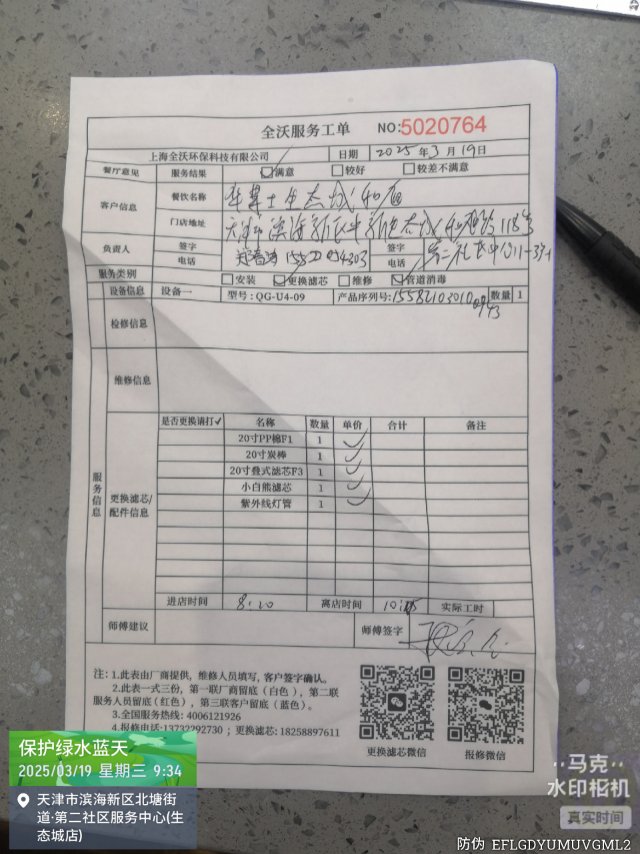 全沃服务工单 NO:5020764
上海全沃环保科技有限公司 日期 2025年3月19日
餐厅意见 服务结果 满意 较好 较差不满意
客户信息 餐饮名称 华莱士生态城和畅
门店地址 天津滨海新区中新生态城和畅路118号
负责人 签字 签字
电话 电话
服务类别 安装 更换滤芯 维修 管道消毒
设备信息 设备一 型号:QG-U4-09 产品序列号: 数量 1
检修信息
维修信息
服务信息
更换滤芯/配件信息
是否更换请打✓ 名称 数量 单价 合计 备注
20寸PP棉F1 1 ✓
20寸炭棒 1 ✓
20寸叠式滤芯F3 1 ✓
小白熊滤芯 1 ✓
紫外线灯管 1 ✓
进店时间 8:20 离店时间 实际工时
师傅建议 师傅签字
注:1.此表由厂商提供,维修人员填写,客户签字确认。
2.此表一式三份,第一联厂商留底(白色),第二联
服务人员留底(红色),第三联客户留底(蓝色)。
3.全国服务热线:4006121926
4.报修电话:13732292730;更换滤芯:18258897611
更换滤芯微信 报修微信
保护绿水蓝天
2025/03/19 星期三 9:34
天津市滨海新区北塘街
道·第二社区服务中心(生
态城店)
马克
水印相机
真实时间
防伪 EFLGDYUMUVGML2